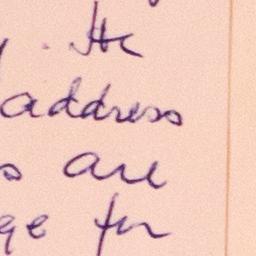 . He
address
s are
ge for